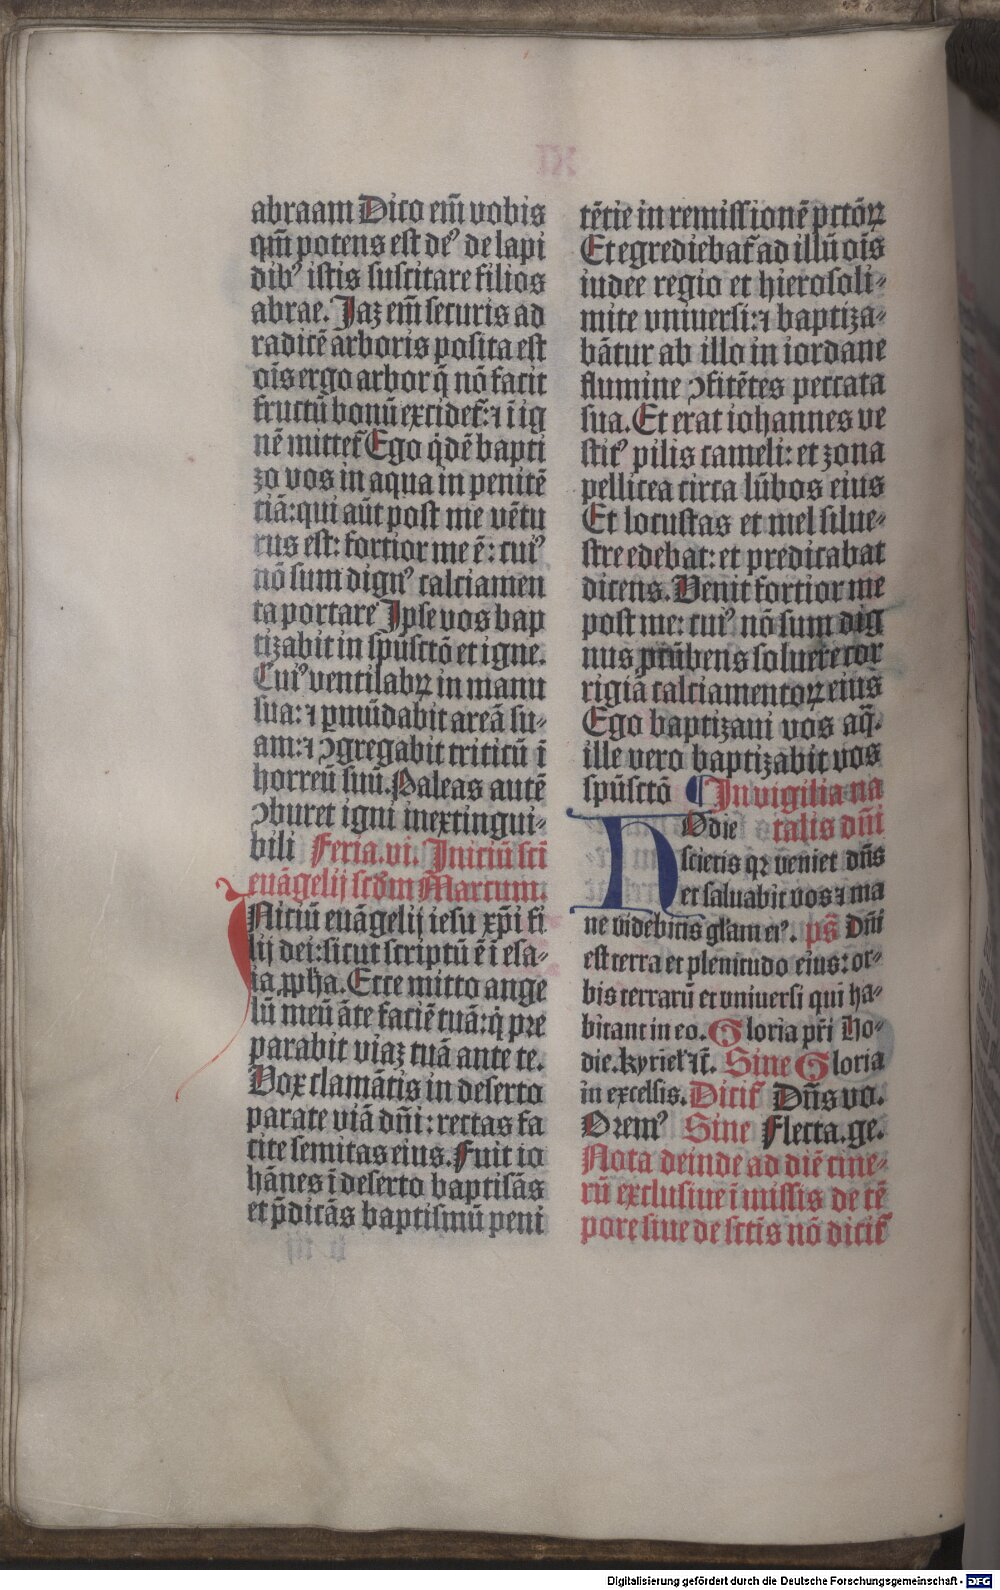 abraam Dico em̄ vobis
qm̄ potens est deꝰ de lapi
dibꝰ istis suscitare filios
abrae. Jaz em̄ securis ad
radicē arboris posita est
oīs ergo arbor q̄ nō facit
fructū bonū excidet᷑: ⁊ ī ig
nē mittet᷑ Ego q̇dē bapti
zo vos in aqua in penitē
ciā: qui aūt post me vētu
rus est: fortior me ē: cuiꝰ
nō sum dignꝰ calciamen
ta portare Ipse vos bap
tizabit in spūsctō et igne.
Cuiꝰ ventilabꝝ in manu
sua: ⁊ ꝑmūdabit areā su⸗
am: ⁊ ꝯgregabit triticū ī
horreū suū. Paleas autē
ꝯburet igni inextingui⸗
bili Feria. vi. Iniciū scī
euāgelij scd̄m Marcum.
INiciū euāgelij iesu xp̄i fi
lij dei: sicut scriptū ē ī esa⸗
ia ꝓpha. Ecce mitto ange
lū meū āte faciē tuā: q̇ pre
parabit viaz tuā ante te.
Vox clamātis in deserto
parate viā dn̄i: rectas fa
cite semitas eius. Fuit io
hānes ī deserto baptisās
et p̄dicās baptismū peni
tētie in remissionē pctōꝝ
Et egrediebat᷑ ad illū oīs
iudee regio et hierosoli⸗
mite vniuersi: ⁊ baptiza⸗
bātur ab illo in iordane
flumine ꝯfitētes peccata
sua. Et erat iohannes ve
stitꝰ pilis cameli: et zona
pellicea circa lūbos eius
Et locustas et mel silue⸗
stre edebat: et predicabat
dicens. Venit fortior me
post me: cuiꝰ nō sum dig
nus ꝓcūbens soluere cor
rigiā calciamentoꝝ eius
Ego baptizaui vos aq̄.
ille vero baptizabit vos
spūsctō ¶ In vigilia na
HOdie talis dn̄i
scietis qꝛ veniet dn̄s
et saluabit vos ⁊ ma
ne videbitis gl̄am eiꝰ. ps̄ Dn̄i
est terra et plenitudo eius: or⸗
bis terrarū et vniuersi qui ha⸗
bitant in eo. Gloria pr̄i Ho⸗
die. kyriel̄ ⁊c̄. Sine Gloria
in excelsis. Dicit᷑ Dn̄s vo.
Oremꝰ Sine Flecta. ge.
Nota deinde ad diē cine⸗
rū exclusiue ī missis de tē
pore siue de sctīs nō dicit᷑
Digitalisierung gefördert durch die Deutsche Forschungsgemeinschaft - DFG